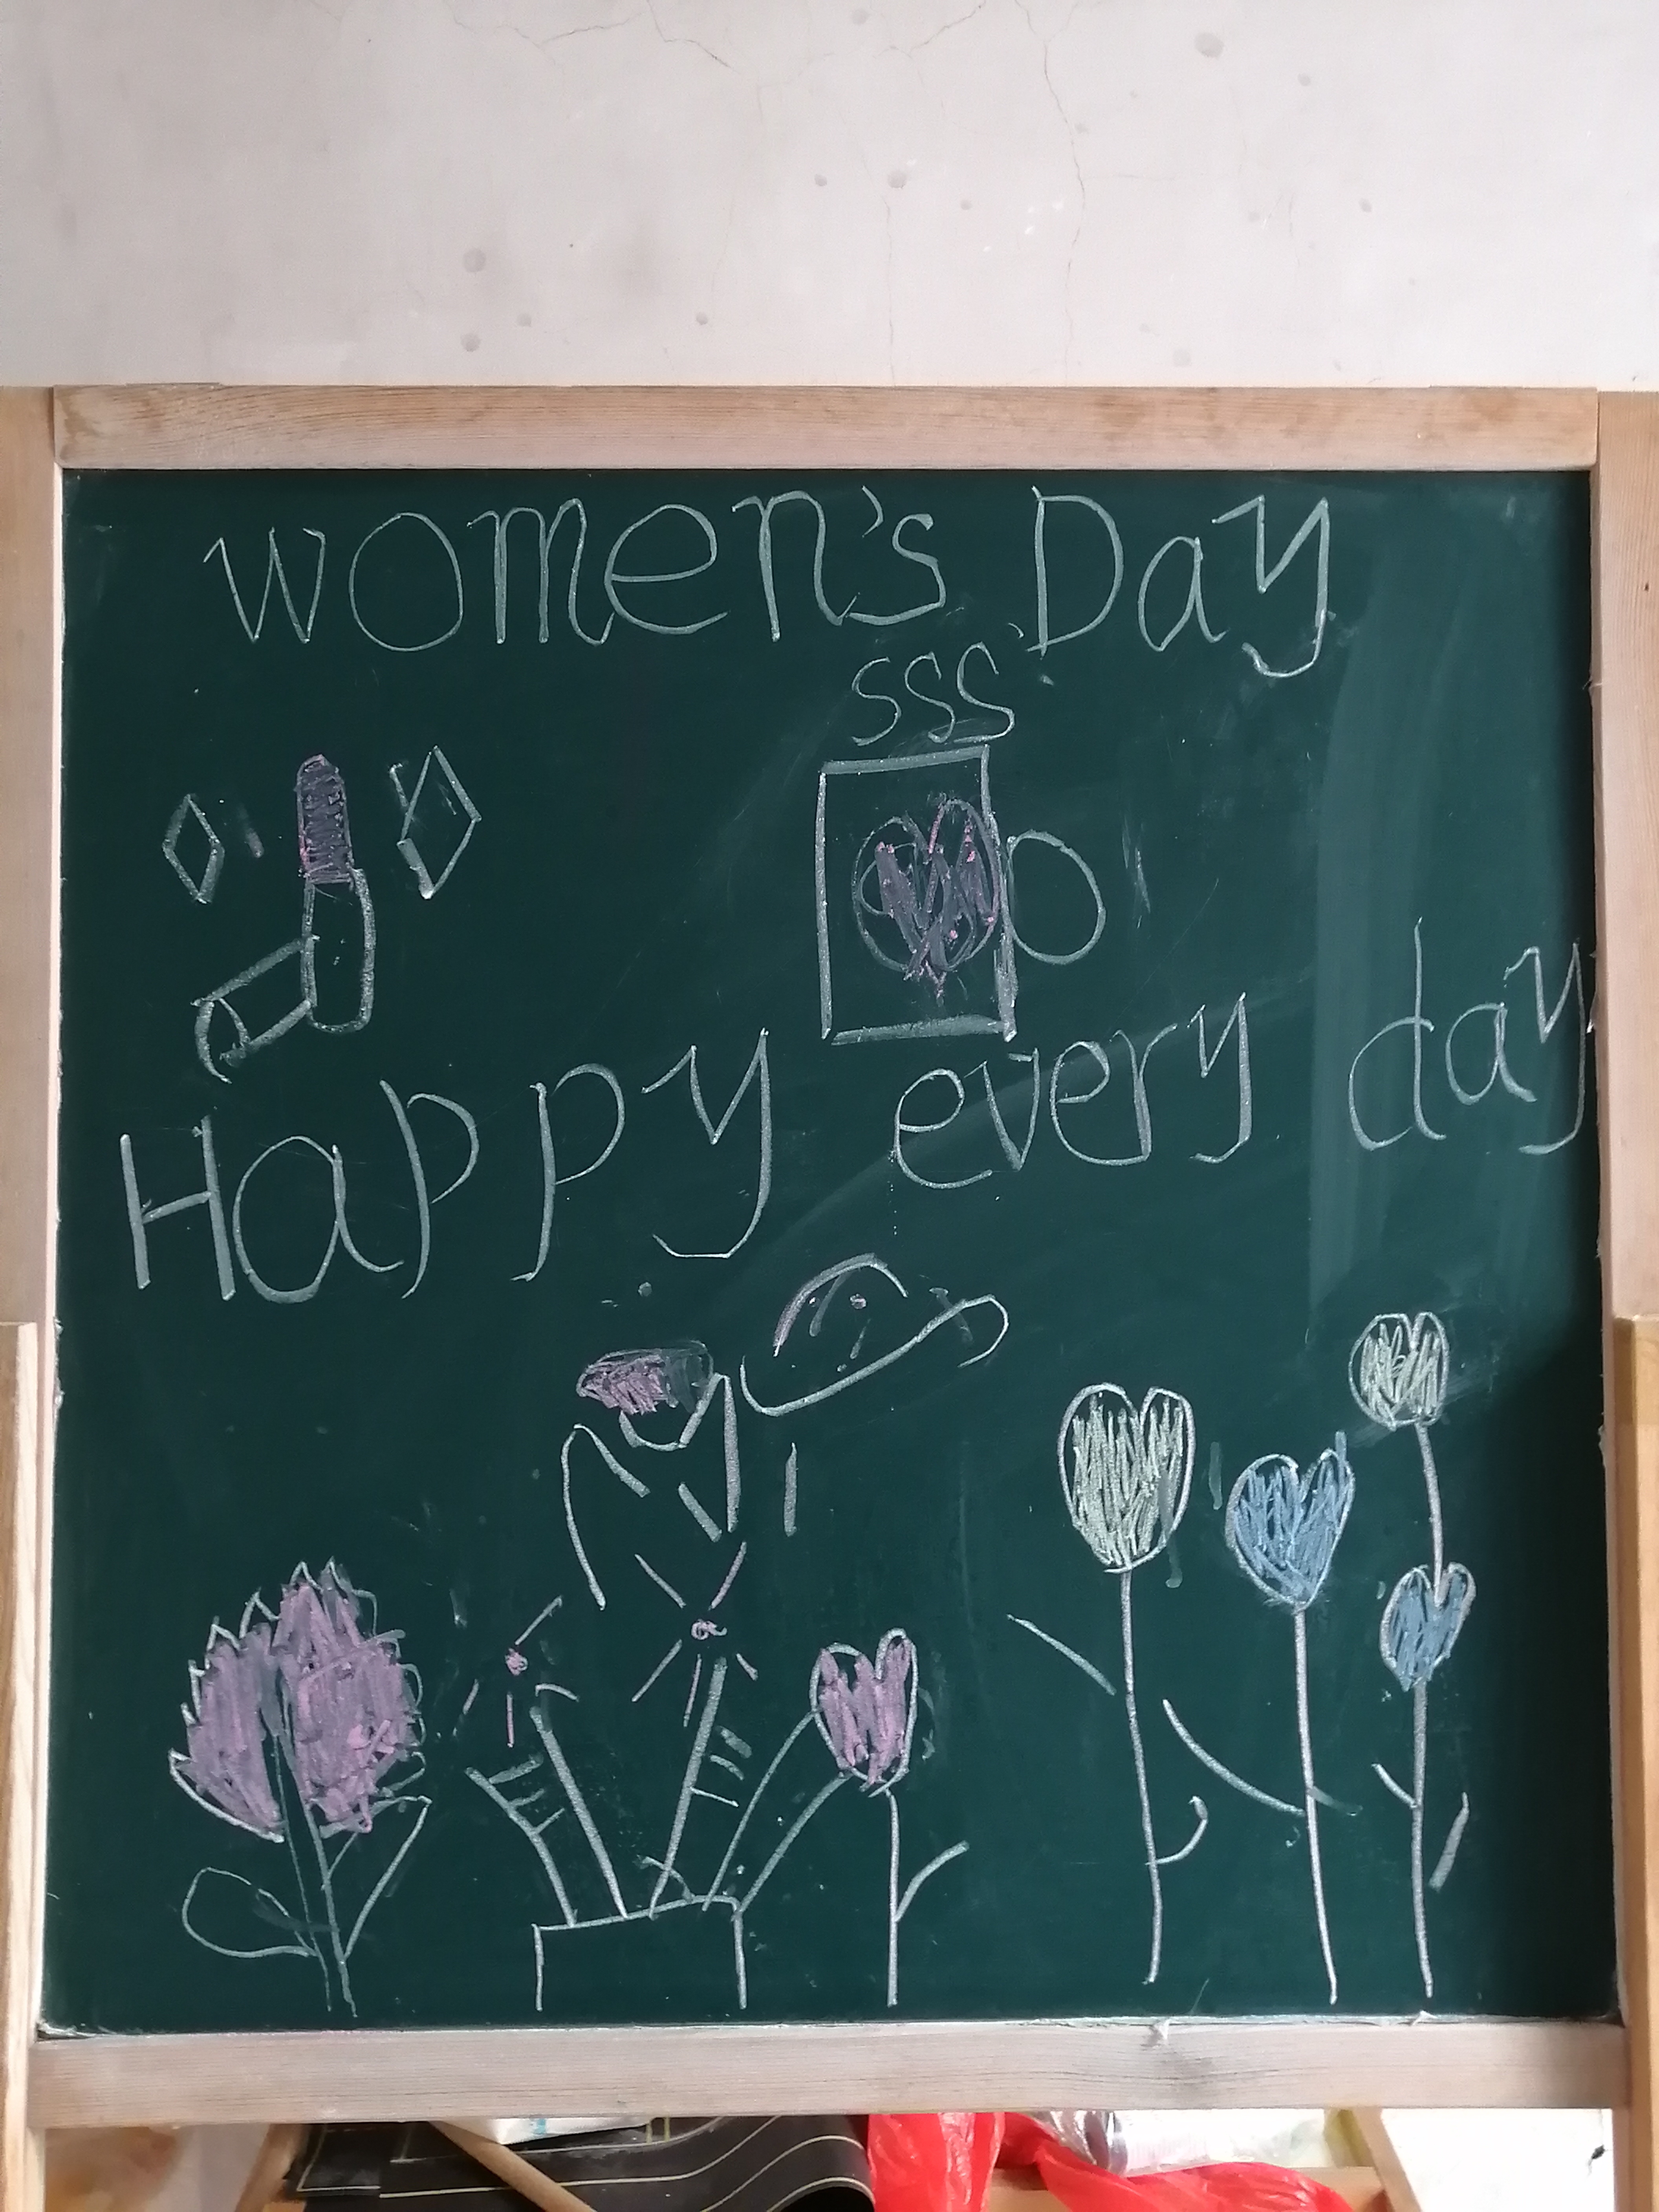 women's Day
sss
Happy every day